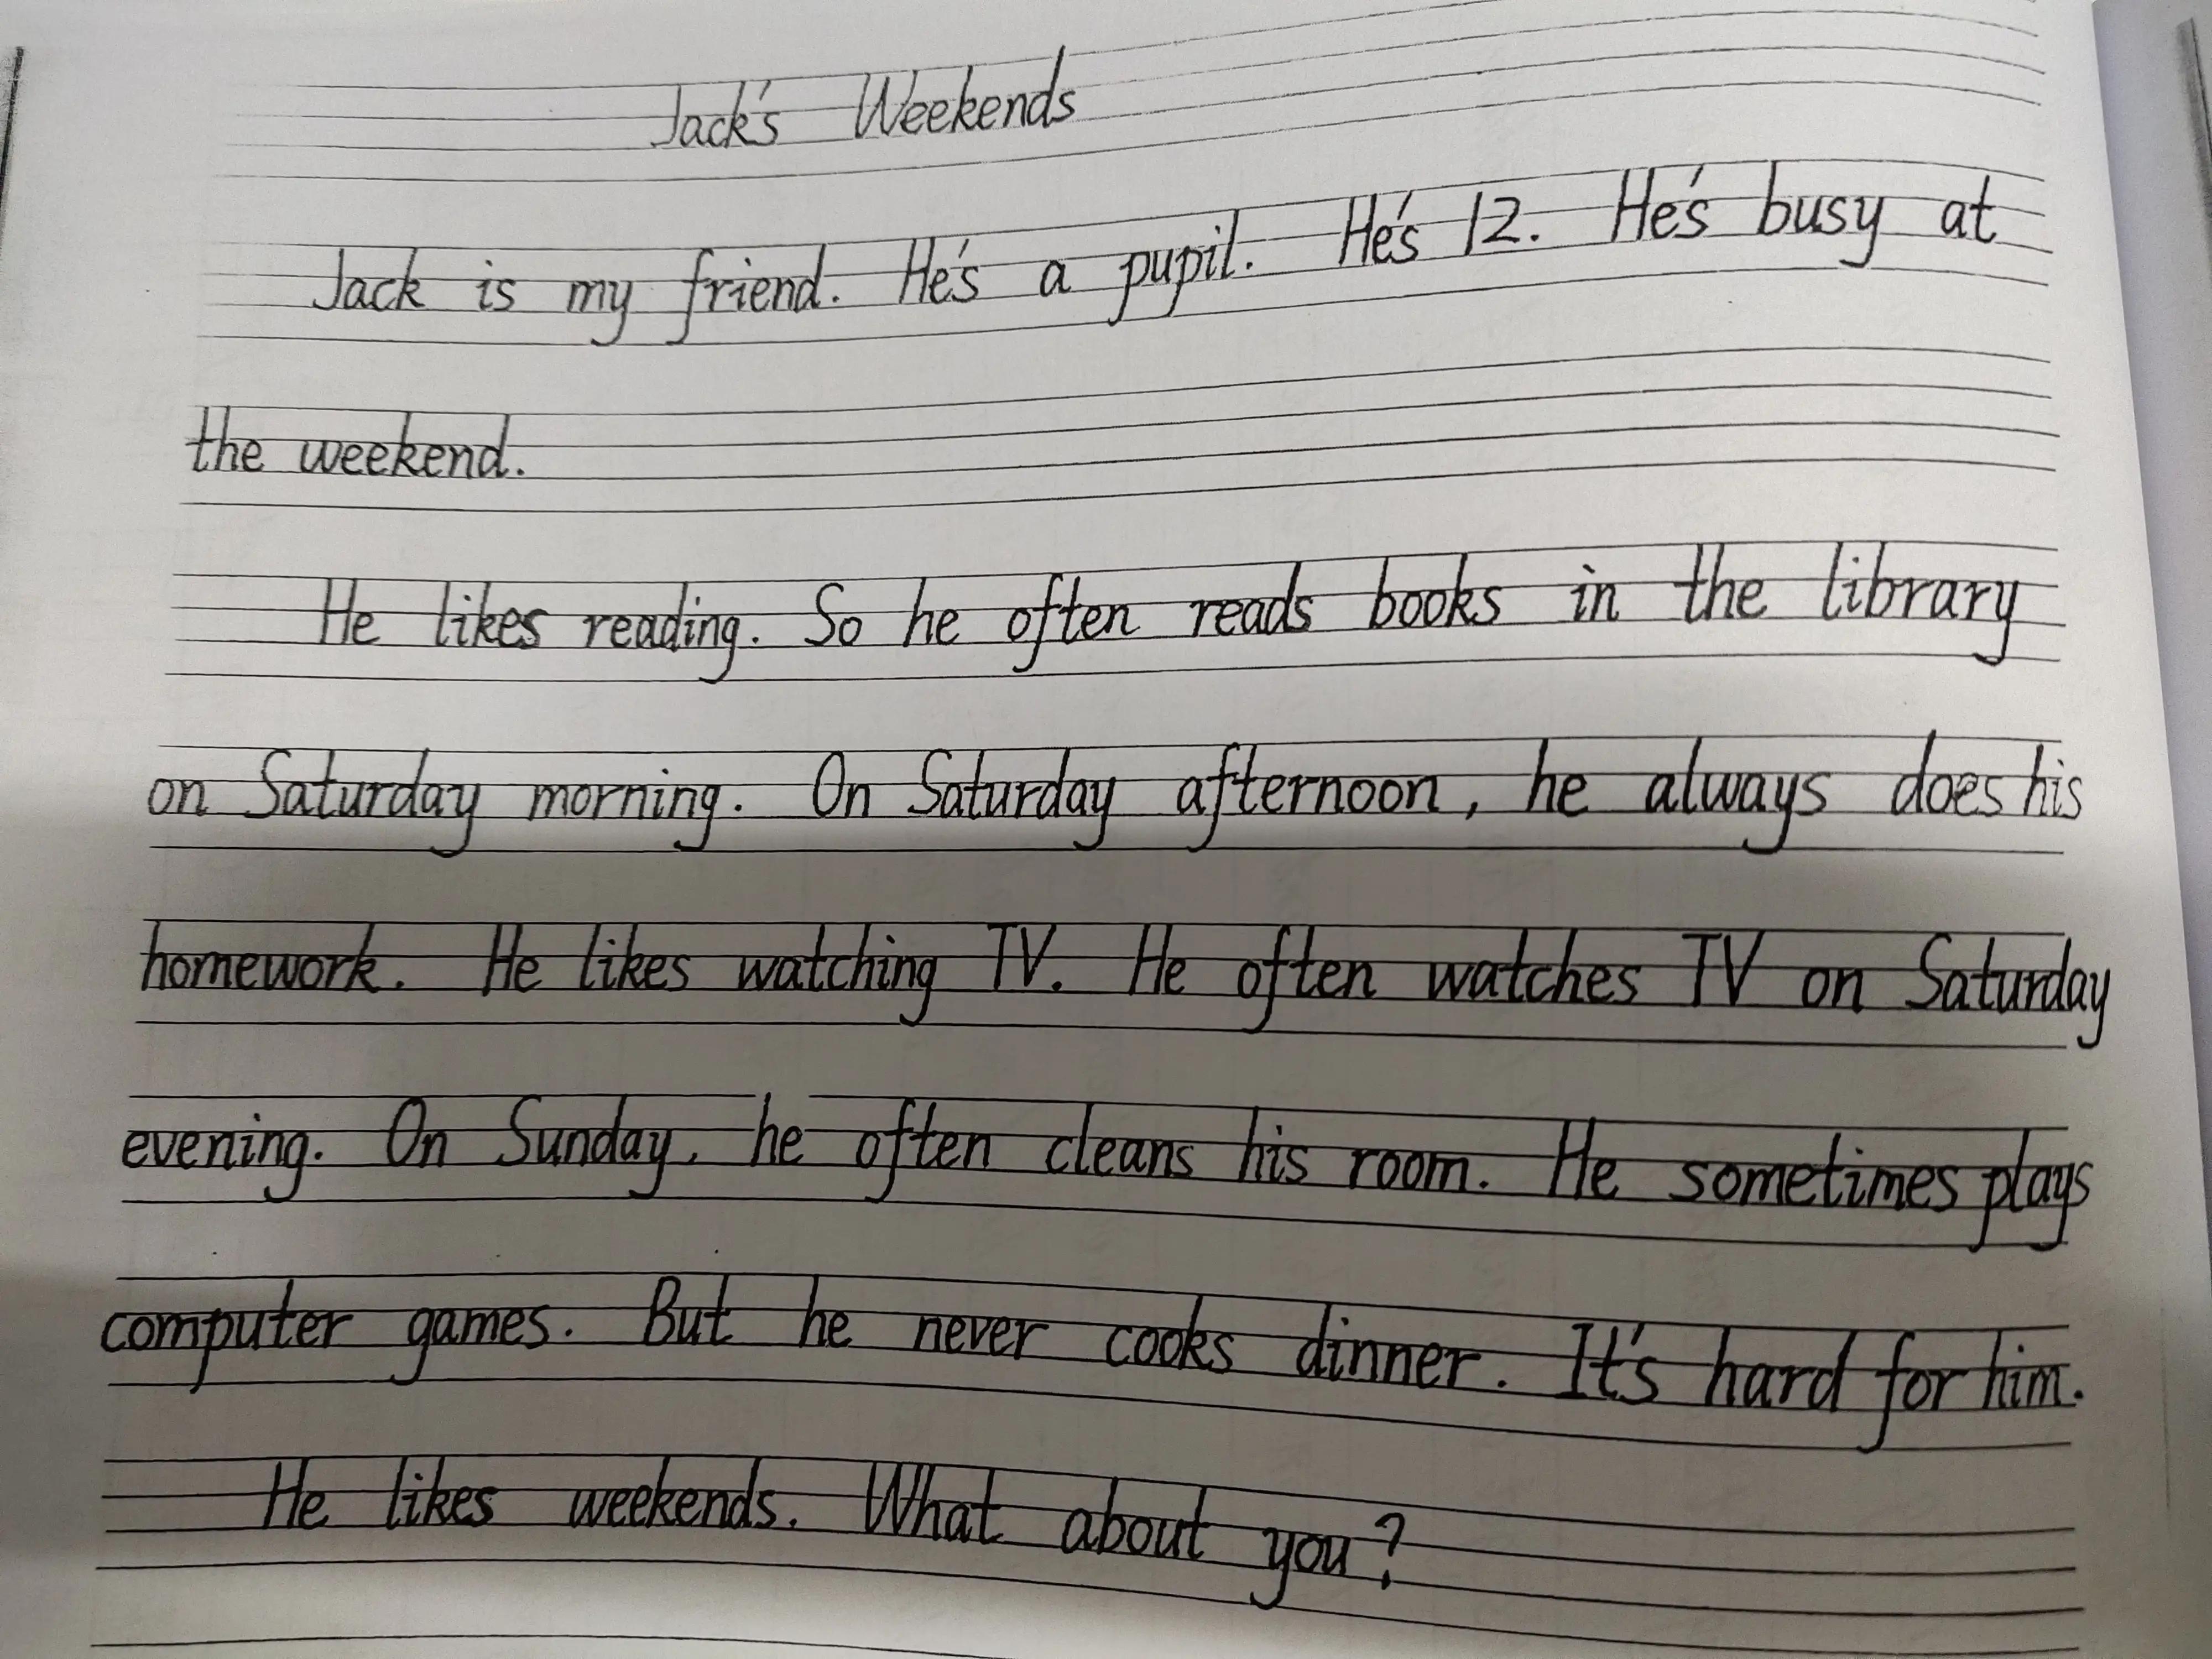 Jack's Weekends
Jack is my friend. He's a pupil. He's 12. He's busy at
the weekend.
He likes reading. So he often reads books in the library
on Saturday morning. On Saturday afternoon, he always does his
homework. He likes watching TV. He often watches TV on Saturday
evening. On Sunday, he often cleans his room. He sometimes plays
computer games. But he never cooks dinner. It's hard for him.
He likes weekends. What about you?